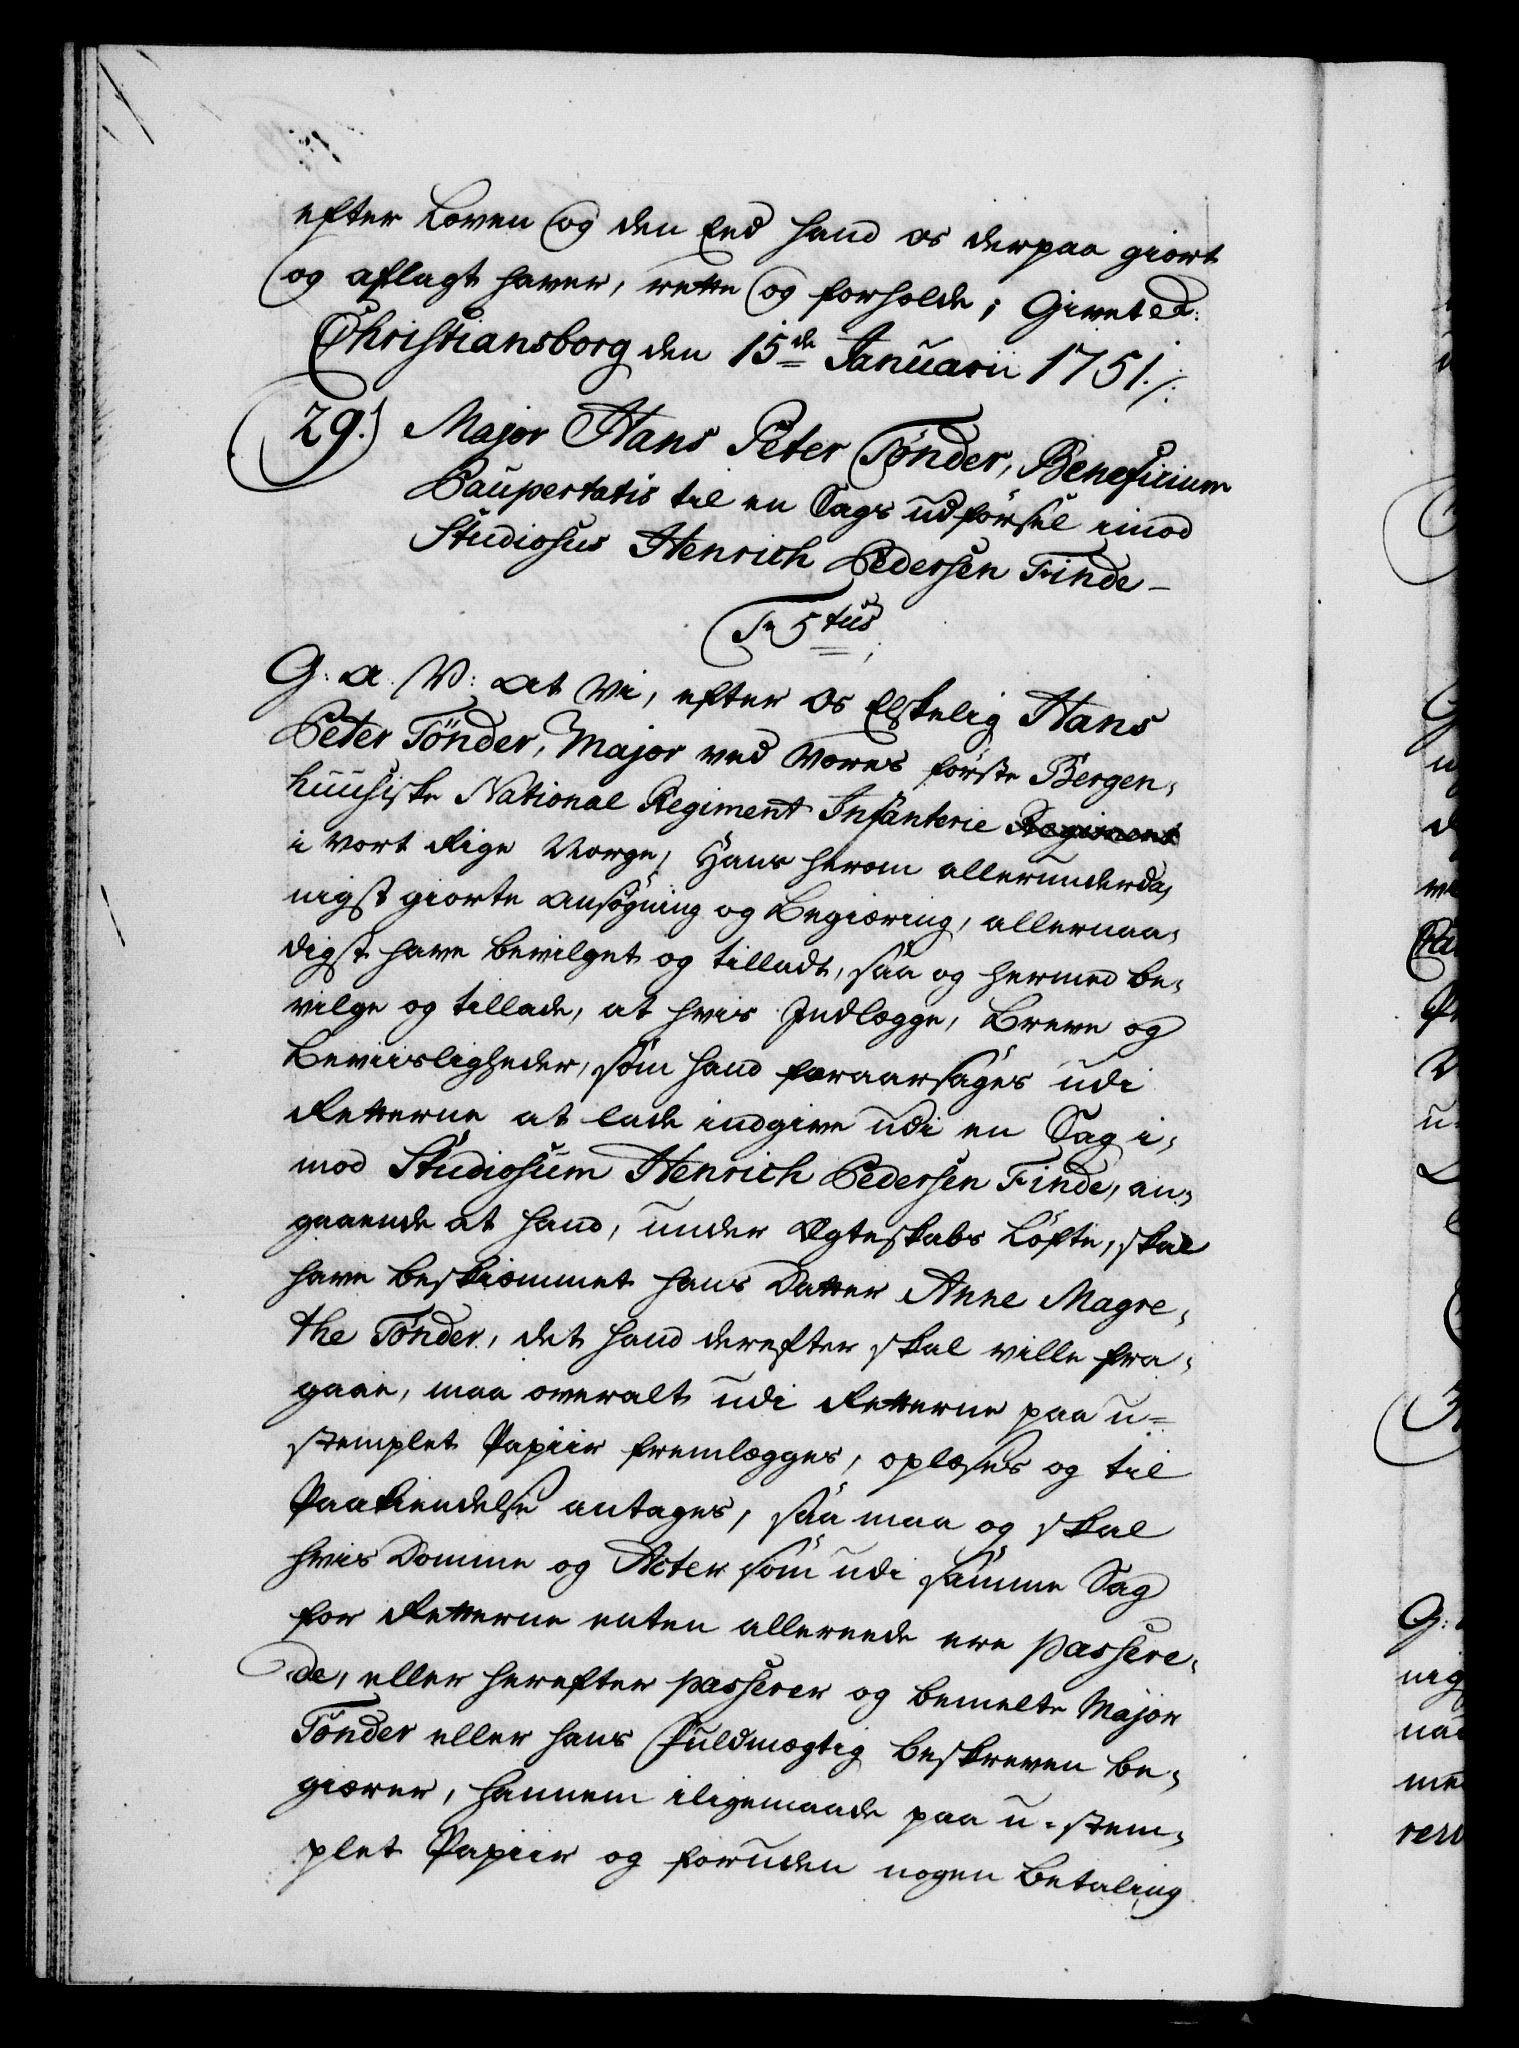 efter Loven og den Eed hand os derpaa giort
og aflagt haver, rette og forholde; Givet &:
Christiansborg den 15de Januarii 1751./:
29.) Major Hans Peter Tønder, Beneficium
Paupertatis til en Sags udførsel imod
Studiosus Henrich Pedersen Finde-
Fr 5tus;
G: A: V: at Vi, efter Os Elskelig Hans
Peter Tönder, Major ved Vores første Bergen-
huusiske National Regiment Infanterie Regiment
i Vort Rige Norge, Hans herom allerunderda-
nigst giorte Ansøgning og Begiæring, allernaa-
digst have bevilget og tilladt, saa og hermed be-
vilge og tillade, at hvis Indlægge, Breve og
Beviisligheder, som hand foraarsages udi
Retterne at lade indgive udi en Sag i-
mod Studiosum Henrich Pedersen Finde, an-
gaaende at hand, under Ægteskabs Løfte, skal
have beskiæmmet hans Datter Anne Magre-
the Tønder, det hand derefter skal ville fra-
gaae, maa overalt udi Retterne paa u-
stemplet Papiir fremlægges, oplæses og til
Paakiendelse antages, saa maa og skal
hvis Domme og Acter som udi samme Sag
for Retterne enten allereede ere passere-
de, eller herefter passerer og bemelte Major
Tønder eller hans Fuldmægtig beskreven be-
giærer, hannem iligemaade paa u-stem-
plet Papiir og foruden nogen Betaling